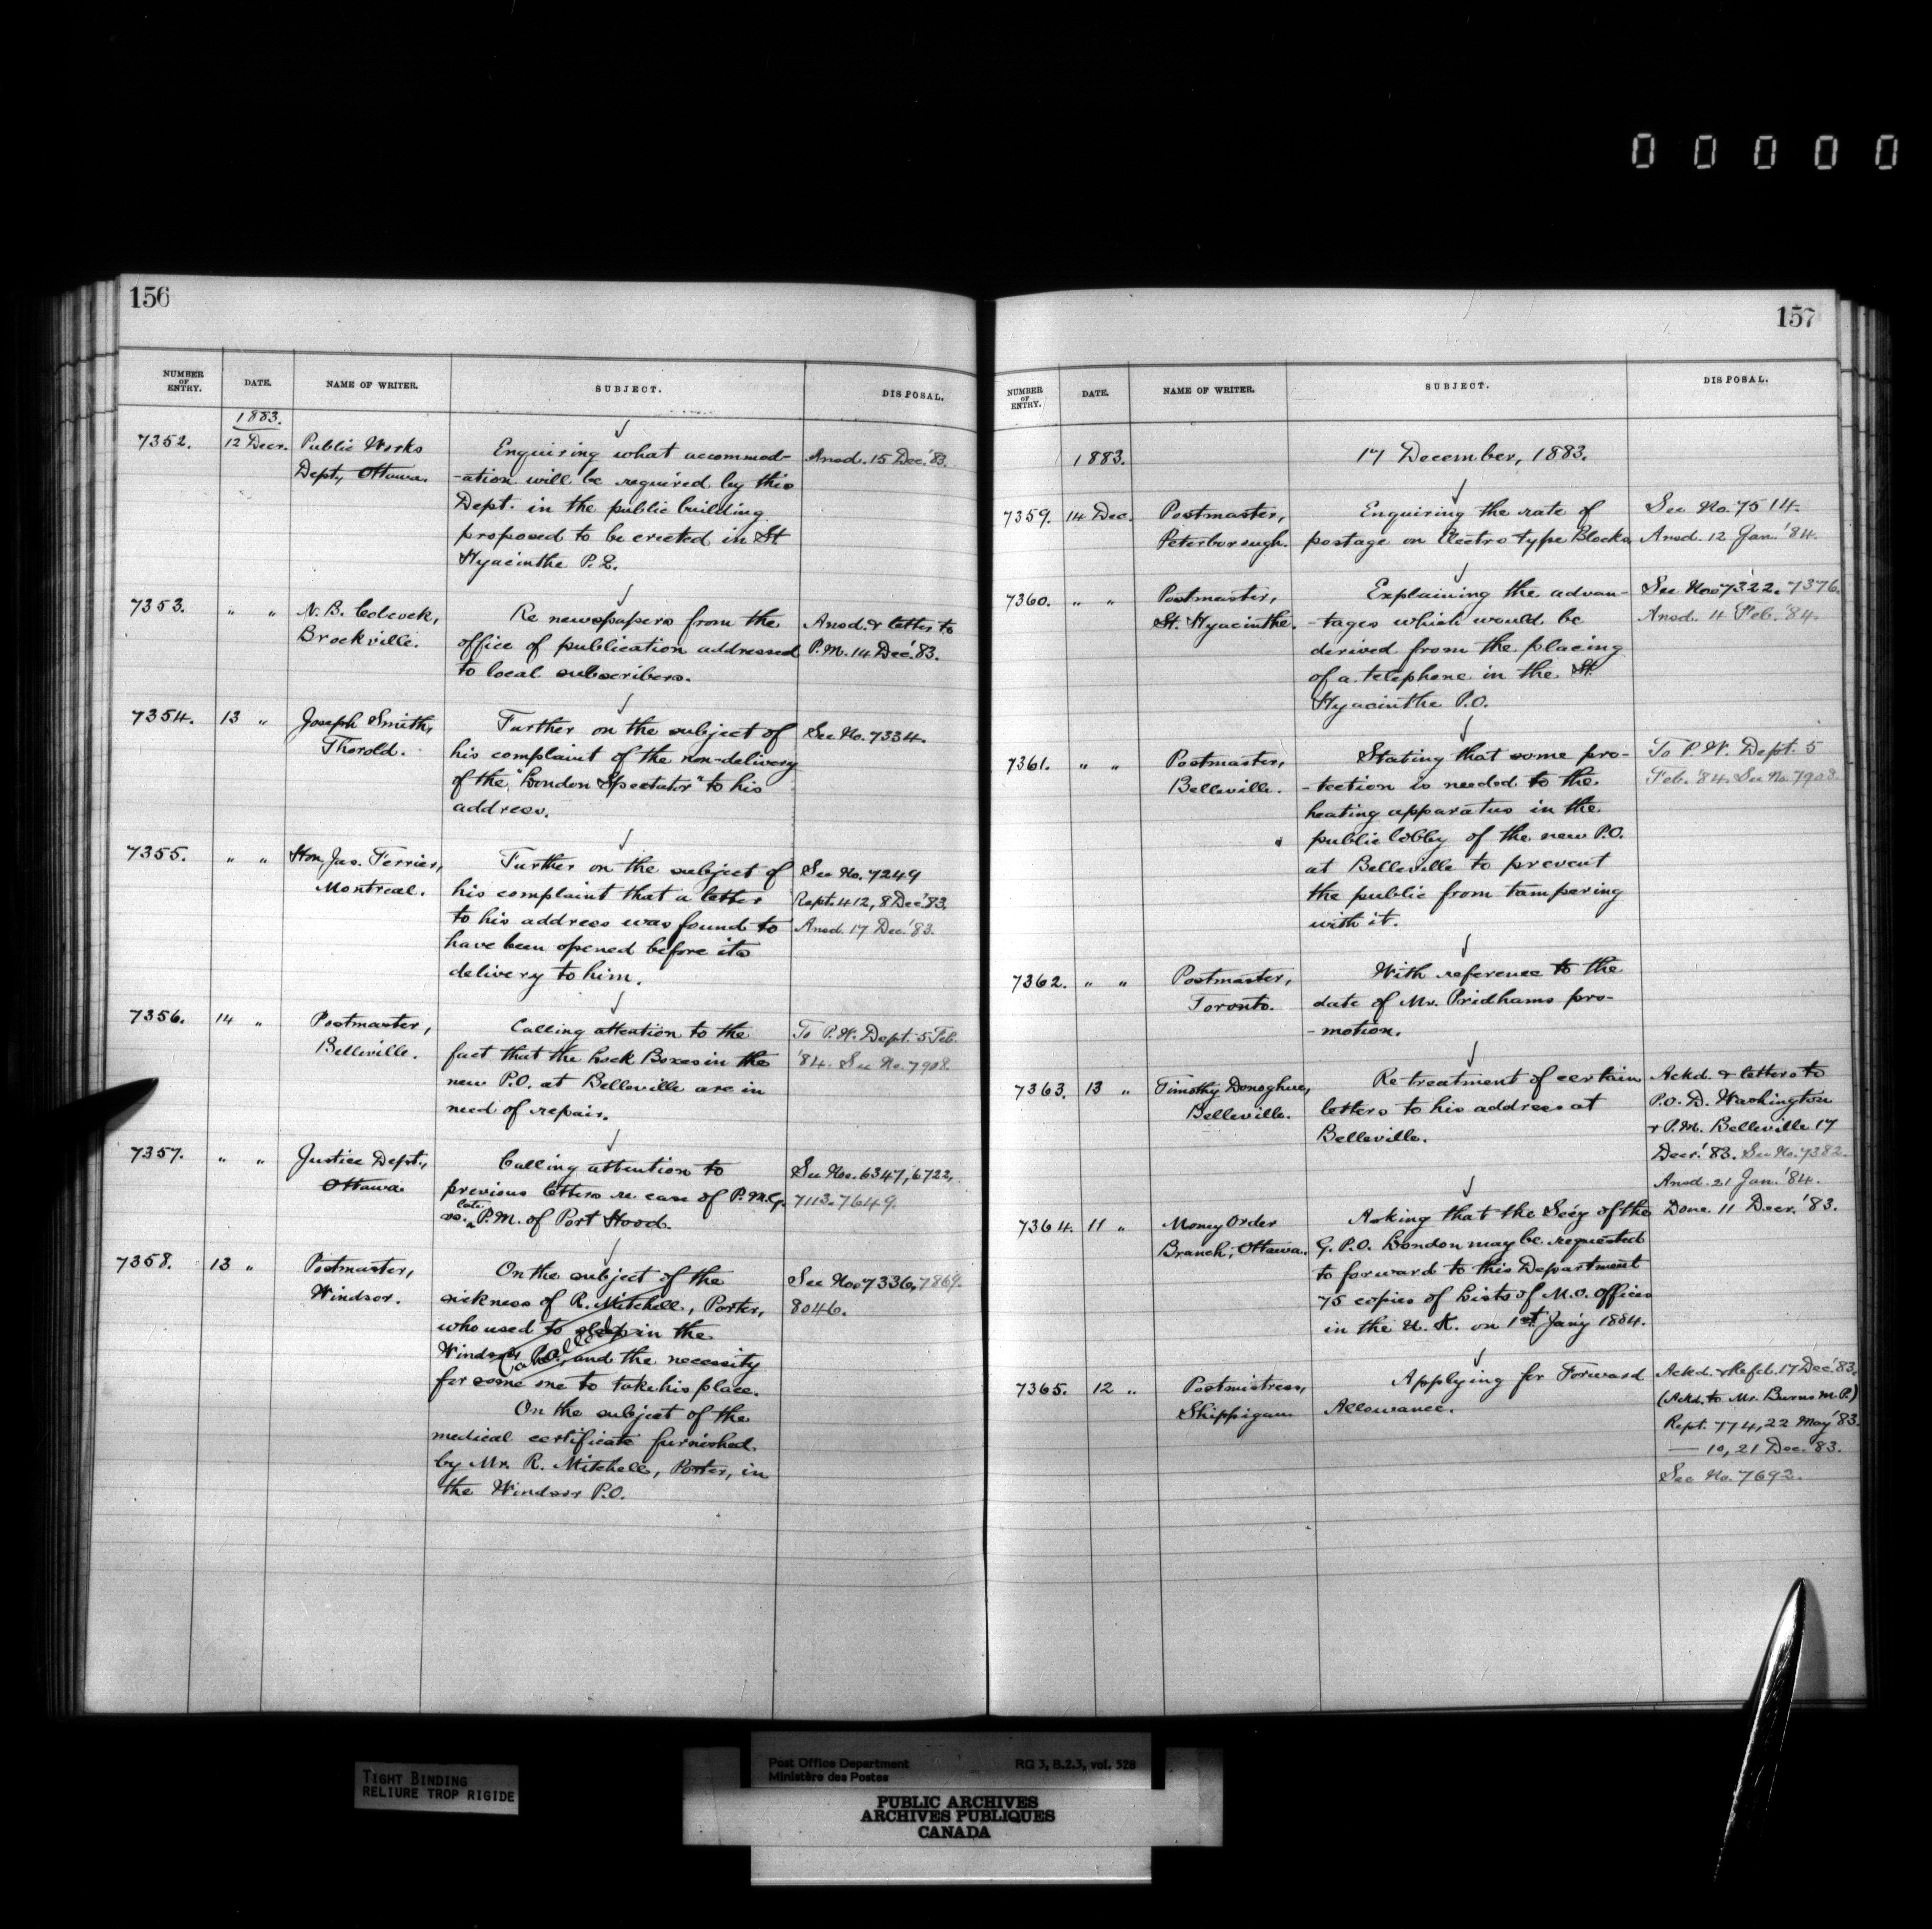 00000
156
NUMBER OF ENTRY. DATE. NAME OF WRITER. SUBJECT. DISPOSAL.
1883.
7352. 12 Decr. Public Works Enquiring what accommod- Ansd. 15 Dec. '83.
Dept., Ottawa. -ation will be required by this
Dept. in the public building
proposed to be erected in St
Hyacinthe P.Q.
7353. " " N. B. Colcock, Re newspapers from the Ansd. & letter to
Brockville. office of publication addressed P.M. 14 Dec. '83.
to local subscribers.
7354. 13 " Joseph Smith, Further on the subject of See No. 7334.
Thorold. his complaint of the non-delivery
of the "London Spectator" to his
address.
7355. " " Hon. Jas. Ferrier, Further on the subject of See No. 7249
Montreal. his complaint that a letter Rept. 412, 8 Dec. '83.
to his address was found to Ansd. 17 Dec. '83.
have been opened before its
delivery to him.
7356. 14 " Postmaster, Calling attention to the To P.W. Dept. 5 Feb.
Belleville. fact that the Lock Boxes in the '84. See No. 7908.
new P.O. at Belleville are in
need of repair.
7357. " " Justice Dept., Calling attention to See Nos. 6347, 6722,
Ottawa. previous letters re case of P.M.G. 7113. 7649.
vs. late P.M. of Port Hood.
7358. 13 " Postmaster, On the subject of the See Nos. 7336, 7869.
Windsor. sickness of R. Mitchell, Porter, 8046.
who used to sleep in the
Windsor P.O., and the necessity
Cancelled
for some one to take his place.
On the subject of the
medical certificate furnished
by Mr. R. Mitchell, Porter, in
the Windsor P.O.
157
NUMBER OF ENTRY. DATE. NAME OF WRITER. SUBJECT. DISPOSAL.
1883. 17 December, 1883.
7359. 14 Dec. Postmaster, Enquiring the rate of See No. 7514.
Peterborough. postage on Electrotype Blocks. Ansd. 12 Jan. '84.
7360. " " Postmaster, Explaining the advan- See Nos. 7322. 7376.
St. Hyacinthe. -tages which would be Ansd. 4 Feb. '84.
derived from the placing
of a telephone in the St.
Hyacinthe P.O.
7361. " " Postmaster, Stating that some pro- To P.W. Dept. 5
Belleville. -tection is needed to the Feb. '84. See No. 7908.
heating apparatus in the
public lobby of the new P.O.
at Belleville to prevent
the public from tampering
with it.
7362. " " Postmaster, With reference to the
Toronto. date of Mr. Pridhams pro-
-motion.
7363. 13 " Timothy Donoghue, Re treatment of certain Ackd. & letters to
Belleville. letters to his address at P.O.D. Washington
Belleville. & P.M. Belleville 17
Decr. '83. See No. 7382.
Ansd. 21 Jan. '84.
7364. 11 " Money Order Asking that the Sec'y of the Done 11 Decr. '83.
Branch, Ottawa. G.P.O. London may be requested
to forward to this Department
75 copies of Lists of M.O. Offices
in the U.K. on 1st Jan'y 1884.
7365. 12 " Postmistress, Applying for Forward Ackd. & Refd. 17 Dec. '83.
Shippigan Allowance. (Ackd. to Mr. Burns M.P.)
Rept. 774, 22 May '83.
— 10, 21 Dec. '83.
See No. 7692.
TIGHT BINDING
RELIURE TROP RIGIDE
Post Office Department RG 3, B.2.3, vol. 528
Ministère des Postes
PUBLIC ARCHIVES
ARCHIVES PUBLIQUES
CANADA